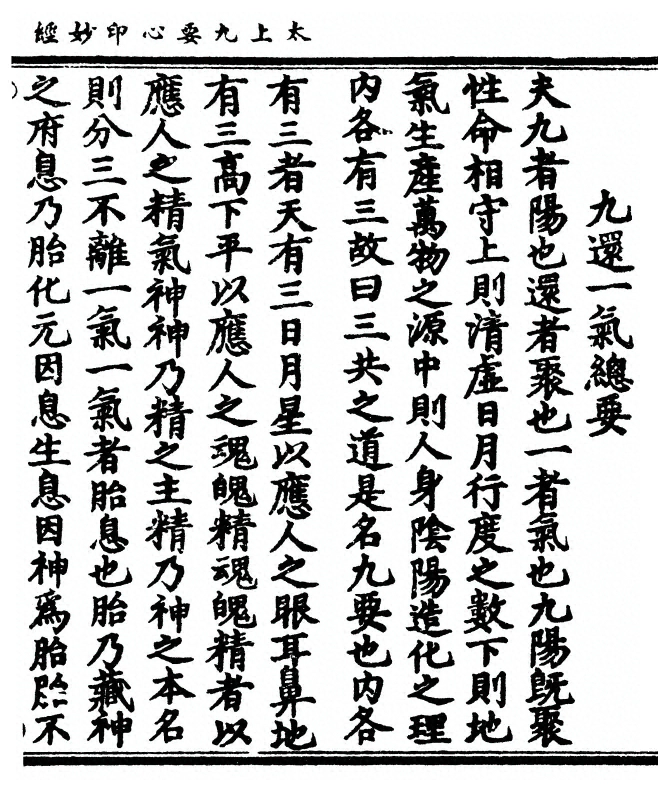 太上九要心印妙經
九還一氣總要
夫九者陽也還者聚也一者氣也九陽既聚
性命相守上則清虛日月行度之數下則地
氣生產萬物之源中則人身陰陽造化之理
內各有三故曰三共之道是名九要也內各
有三者天有三日月星以應人之眼耳鼻地
有三高下平以應人之魂魄精魂魄精者以
應人之精氣神神乃精之主精乃神之本名
則分三不離一氣一氣者胎息也胎乃藏神
之府息乃胎化元因息生息因神爲胎胎不